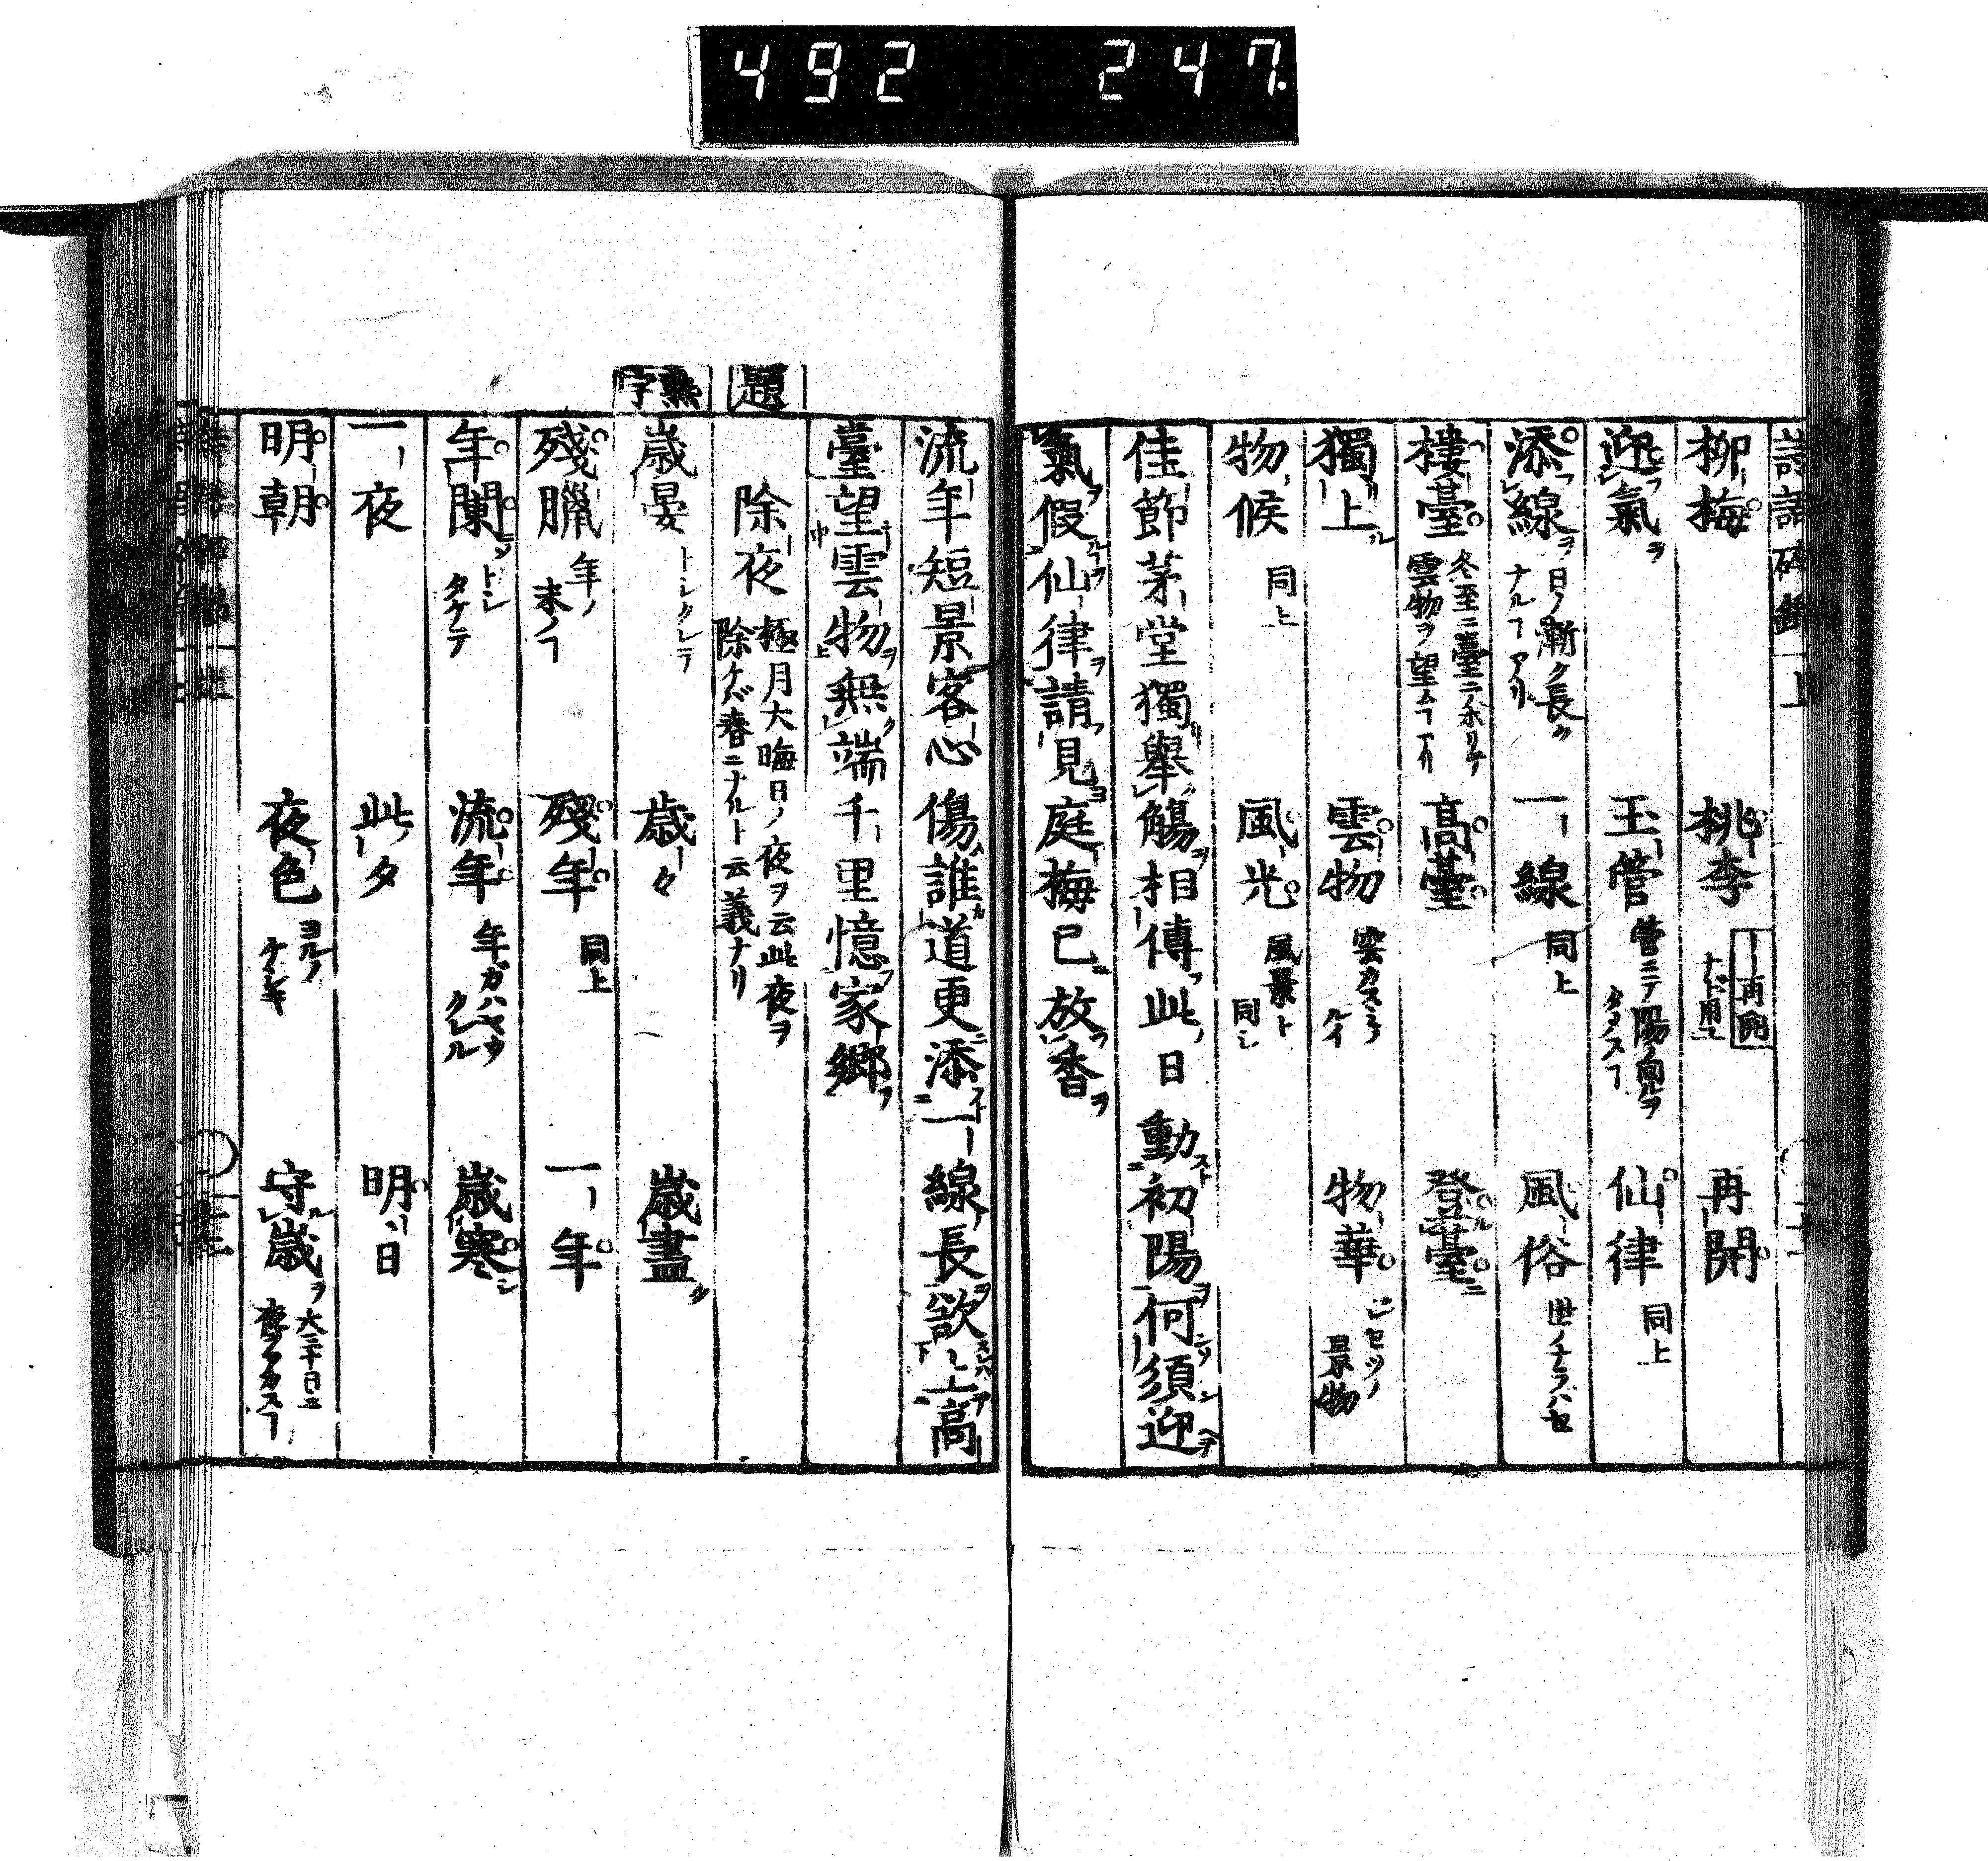 492 247.
柳梅 桃李 再開
迎氣ヲ 玉管 管ニテ陽氣ヲタメスヿ 仙律 同上
添線ヲ 日ノ漸ク長ウナルヿアリ 一線 同上 風俗 世ノナラハセ
樓臺 冬至ニ臺ニノホリテ雲物ヲ望ムヿアリ 高臺 登臺ニ
獨上ル 雲物 雲カスミノルイ 物華 シセツノ景物
物候 同上 風光 風景ト同シ
佳節茅堂獨舉觴相傳此日動初陽何須迎
氣假仙律請見庭梅已放香
流年短景客心傷誰道更添一線長欲上高
臺望雲物無端千里憶家鄉
題
除夜 極月大晦日ノ夜ヲ云此夜ヲ除ケバ春ニナルト云義ナリ
熟字
歲晏 トシクレテ 歲々 歲盡ク
殘臘 年ノ末ノヿ 殘年 同上 一年
年闌 トシタケテ 流年 年ガハヤウクレル 歲寒シ
一夜 此夕 明日
明朝 夜色 ヨルノケシキ 守歲ヲ 大三十日ニ夜ヲアカスヿ